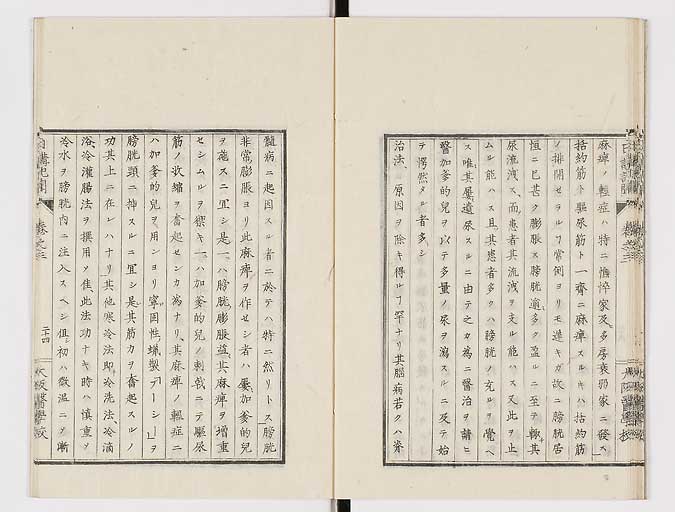 麻痺ノ輕症ハ特ニ憔悴家及多房衰弱家ニ發ス
括約筋ト驅尿筋ト一齊ニ麻痺スルキハ括約筋
ノ排開セラルヽヿ常例ヨリモ速キガ故ニ膀胱居
恒ニ巳甚ク膨脹ス膀胱適多ク盈ルニ至テ輙其
尿流洩ス而患者其流洩ヲ支ル能ハス又此ヲ止
ムル能ハス且其患者多クハ膀胱ノ充ルヲ覺ヘ
ス唯其屢遺尿スルニ由テ之カ爲ニ醫治ヲ請ヒ
醫加爹的兒ヲ以テ多量ノ尿ヲ瀉スルニ及テ始
テ愕然タル者多シ
治法 原因ヲ除キ得ルヿ罕ナリ其腦病若クハ脊
髓病ニ起因スル者ニ於テハ特ニ然リトス膀胱
非常膨脹ヨリ此麻痺ヲ作セシ者ハ屢加爹的兒
ヲ施スニ冝シ是一ハ膀胱膨脹益其麻痺ヲ增重
セシムルヲ禦キ一ハ加爹的兒ノ刺戟ニテ驅尿
筋ノ收縮ヲ奮起センカ爲ナリ其麻痺ノ輕症ニ
ハ加爹的兒ヲ用ンヨリ寧固性蠟製「ブーシー」ヲ
膀胱頸ニ挿スルニ冝シ是其筋力ヲ奮起スルノ
功其上ニ在レハナリ其他寒冷法即冷洗法、冷滴
浴、冷灌腸法ヲ撰用メ佳此法功ナキ時ハ愼重メ
冷水ヲ膀胱内ニ注入スヘシ但初ハ微温ニメ漸
日講記聞
卷之三
二十四
大阪醫學校